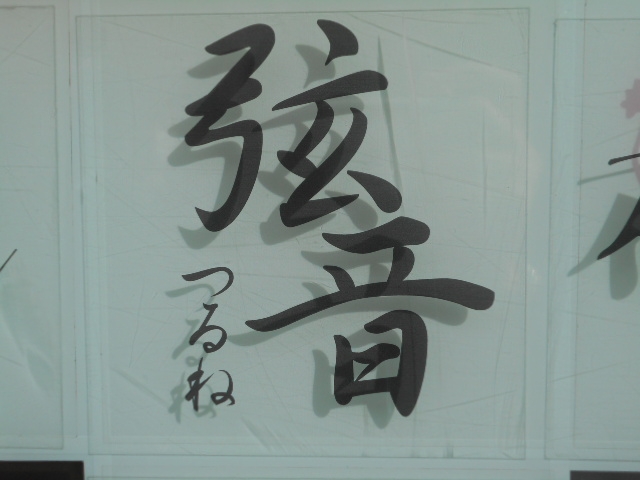 弦音
つるね